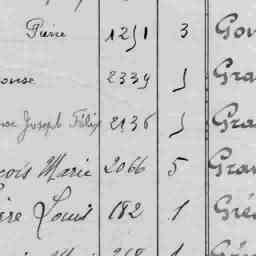 Pierre 1251 3 Gou
onse 2339 5 Gra
Joseph Félix 2136 5 Gra
çois Marie 2066 5 Gran
Louis 182 1 Gré